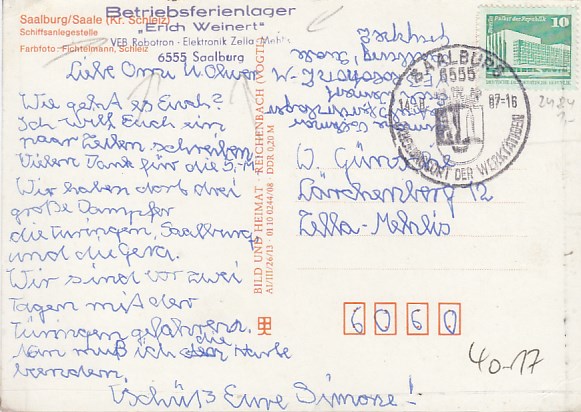 Saalburg/Saale (Kr. Schleiz)
Schiffsanlegestelle
Farbfoto: Fichtelmann, Schleiz
Betriebsferienlager
„Erich Weinert“
VEB Robotron - Elektronik Zella-Mehlis
6555 Saalburg
Liebe Oma u. Oliver
Wie geht es Euch?
Ich will Euch ein
paar Zeilen schreiben.
Vielen Dank für die 5,-M
Wir haben dort drei
große Dampfer
die Türingen, Saalburg
und die Gera.
Wir sind vor zwei
Tagen mit der
Türingen gefahren.
Nun muß ich die Karte
beenden.
Tschüß Eure Simone!
BILD UND HEIMAT · REICHENBACH (VOGTL)
A1/III/26/13 · 01 10 0244/08 DDR 0,20 M
SAALBURG
6555
87-16
DER WERKTÄTIGEN
Palast der Republik
10
DDR
W. Günsche
Lärchenberg 12
Zella-Mehlis
6060
40-17